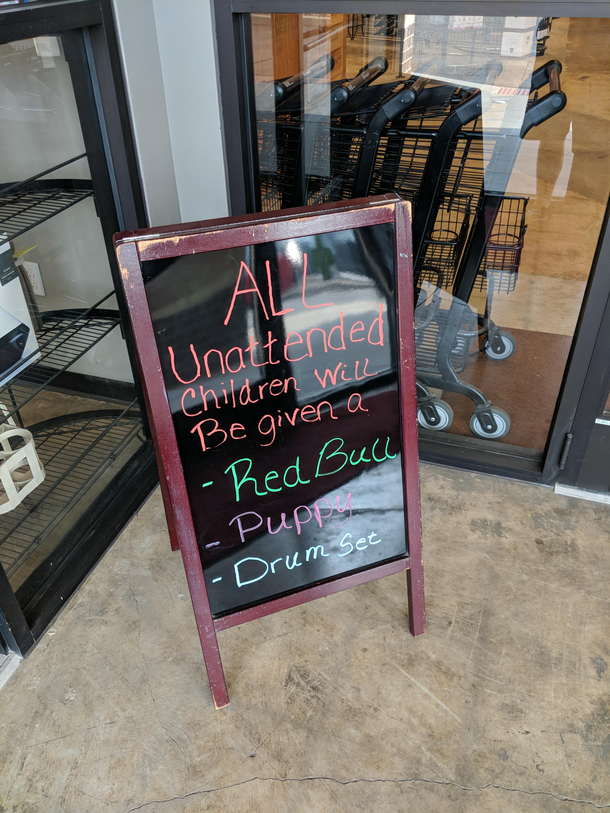 ALL
Unattended
Children Will
Be given a
- Red Bull
- Puppy
- Drum Set